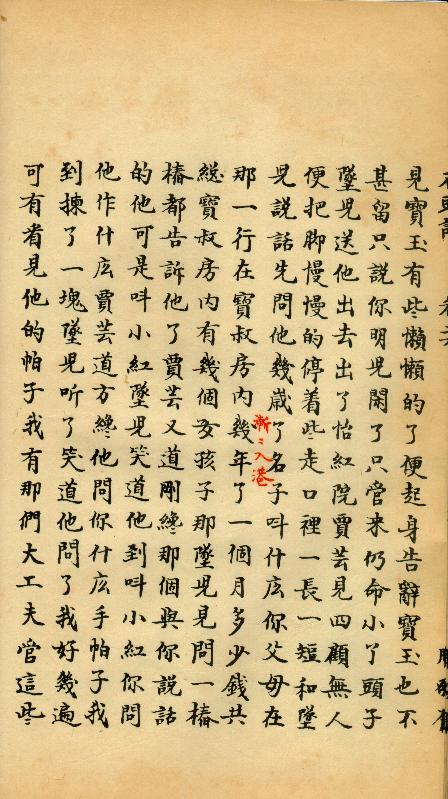 見寶玉有些懶懶的了便起身告辭寶玉也不
甚留只說你明児閑了只管来仍命小了頭子
墜児送他出去出了怡紅院賈芸見四顧無人
便把脚慢慢的停着些走口裡一長一短和墜
児說話先問他幾歲了名子呌什庅你父母在
漸〻入港
那一行在寶叔房内幾年了一個月多少錢共
總寶叔房内有幾個女孩子那墜児見問一樁
樁都告訴他了賈芸又道剛纔那個與你說話
的他可是呌小紅墜児笑道他到呌小紅你問
他作什庅賈芸道方纔他問你什庅手帕子我
到揀了一塊墜児聽了笑道他問了我好幾遍
可有看見他的帕子我有那們大工夫管這些